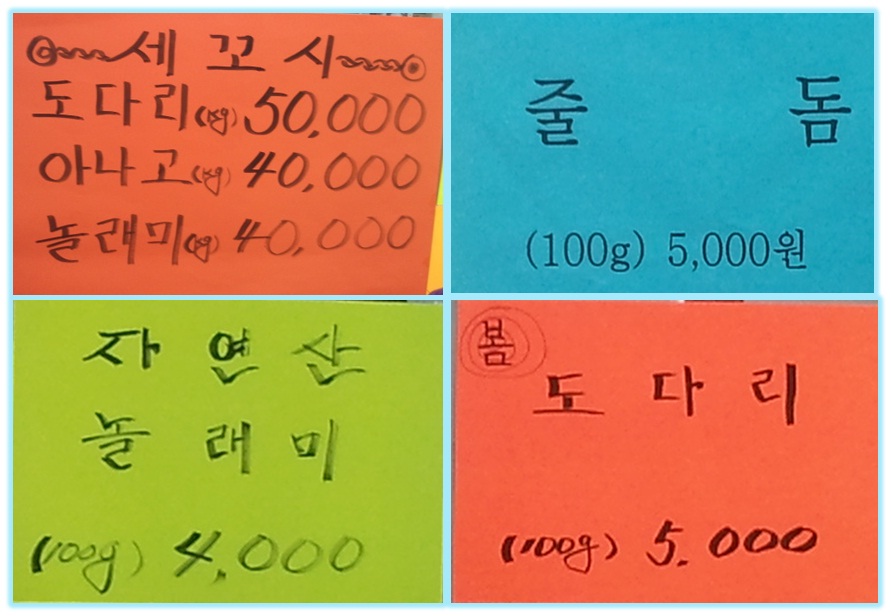 세 꼬 시
도다리(kg) 50,000
아나고(kg) 40,000
놀래미(kg) 40,000
줄 돔
(100g) 5,000원
자 연 산
놀 래 미
(100g) 4,000
봄
도 다 리
(100g) 5.000